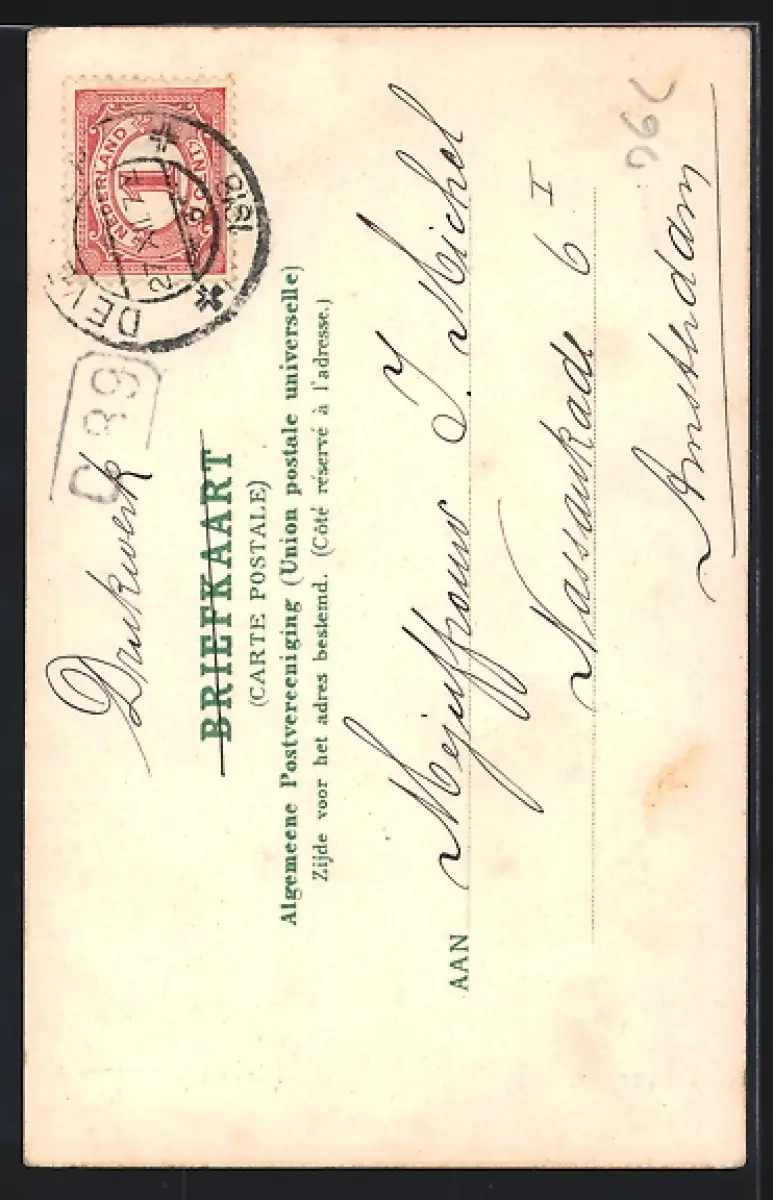 Drukwerk
BRIEFKAART
(CARTE POSTALE)
Algemeene Postvereeniging (Union postale universelle)
Zijde voor het adres bestemd. (Côté réservé à l'adresse.)
AAN Mejuffrouw J. Michel
Nassaukade 6 I
Amsterdam
NEDERLAND
1